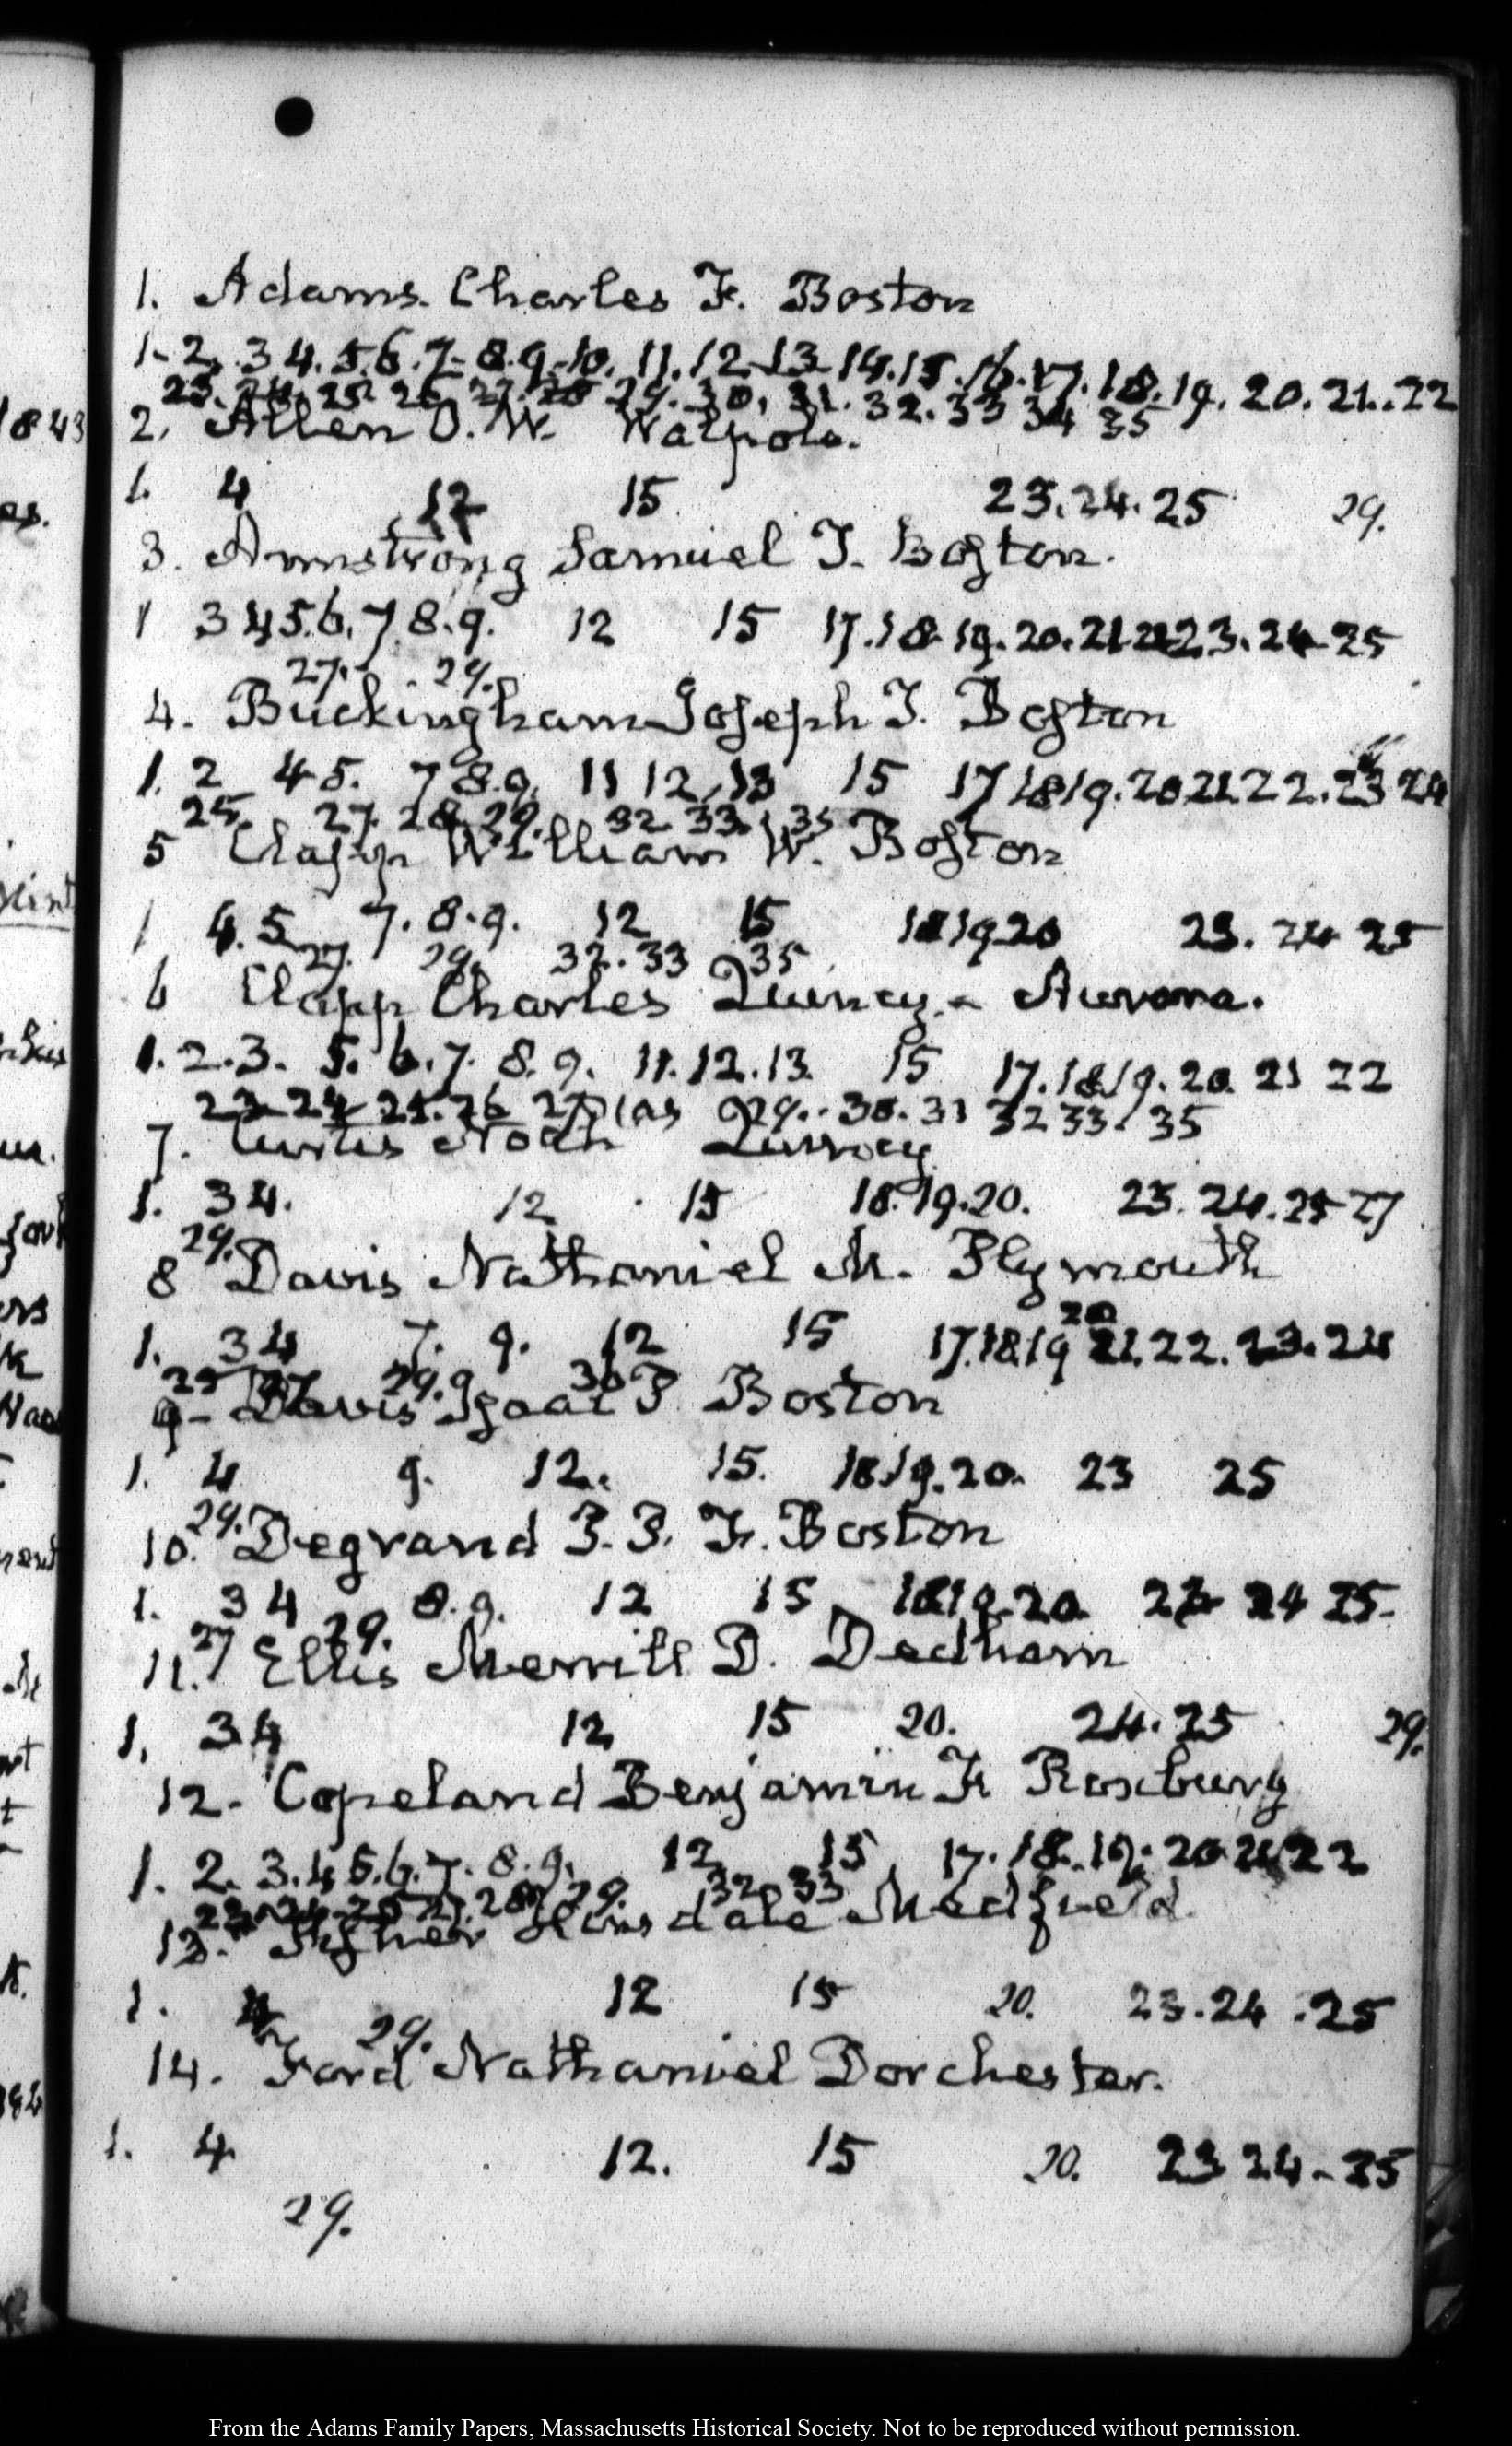 1. Adams. Charles F. Boston
1. 2. 3 4. 5. 6. 7. 8. 9. 10. 11. 12. 13 14. 15. 16. 17. 18. 19. 20. 21. 22
23. 24. 25. 26 27. 28 29. 30. 31. 32. 33 34 35
2. Allen O. W. Walpole.
1. 4 12 15 23. 24. 25 29.
3. Armstrong Samuel T. Boston.
1 3 4 5. 6. 7. 8. 9. 12 15 17. 18. 19. 20. 21 22 23. 24 25
27. 29.
4. Buckingham Joseph T. Boston
1. 2 4 5. 7 8. 9. 11 12. 13 15 17 18 19. 20 21. 22. 23 24
25. 27. 28. 29. 32 33. 35
5 Clapp William W. Boston
1 4. 5 7. 8. 9. 12 15 18 19 20 23. 24 25
27. 29. 32. 33 35
6 Clapp Charles Quincy - Aurora.
1. 2. 3. 5. 6. 7. 8. 9. 11. 12. 13. 15 17. 18. 19. 20. 21 22
23 24 25. 26 27 29. 30. 31 32 33. 35
7. Curtis Noah Quincy
1. 3 4. 12 15 18. 19. 20. 23. 24. 25 27
29.
8 Davis Nathaniel M. Plymouth
20
1. 3 4 7. 9. 12 15 17. 18. 19 21. 22. 23. 24
25 27 29. 30
9- Davis Isaac P. Boston
1. 4 9. 12. 15. 18 19. 20. 23 25
29.
10. Degrand P. P. F. Boston
1. 3 4 8. 9. 12 15 18 19. 20. 23 24 25.
27 29.
11. Ellis Merrill D. Dedham
1. 3 4 12 15 20. 24. 25 29.
12. Copeland Benjamin F. Roxbury
1. 2. 3. 4 5. 6. 7. 8. 9. 12 15 17. 18. 19. 20 21 22
23. 24 25 27. 28 29. 32. 33
13. Fisher Hinsdale Medfield.
1. 4 12 15 20. 23. 24. 25
29.
14. Ford Nathaniel Dorchester.
1. 4 12. 15 20. 23 24 - 25
29.
From the Adams Family Papers, Massachusetts Historical Society. Not to be reproduced without permission.